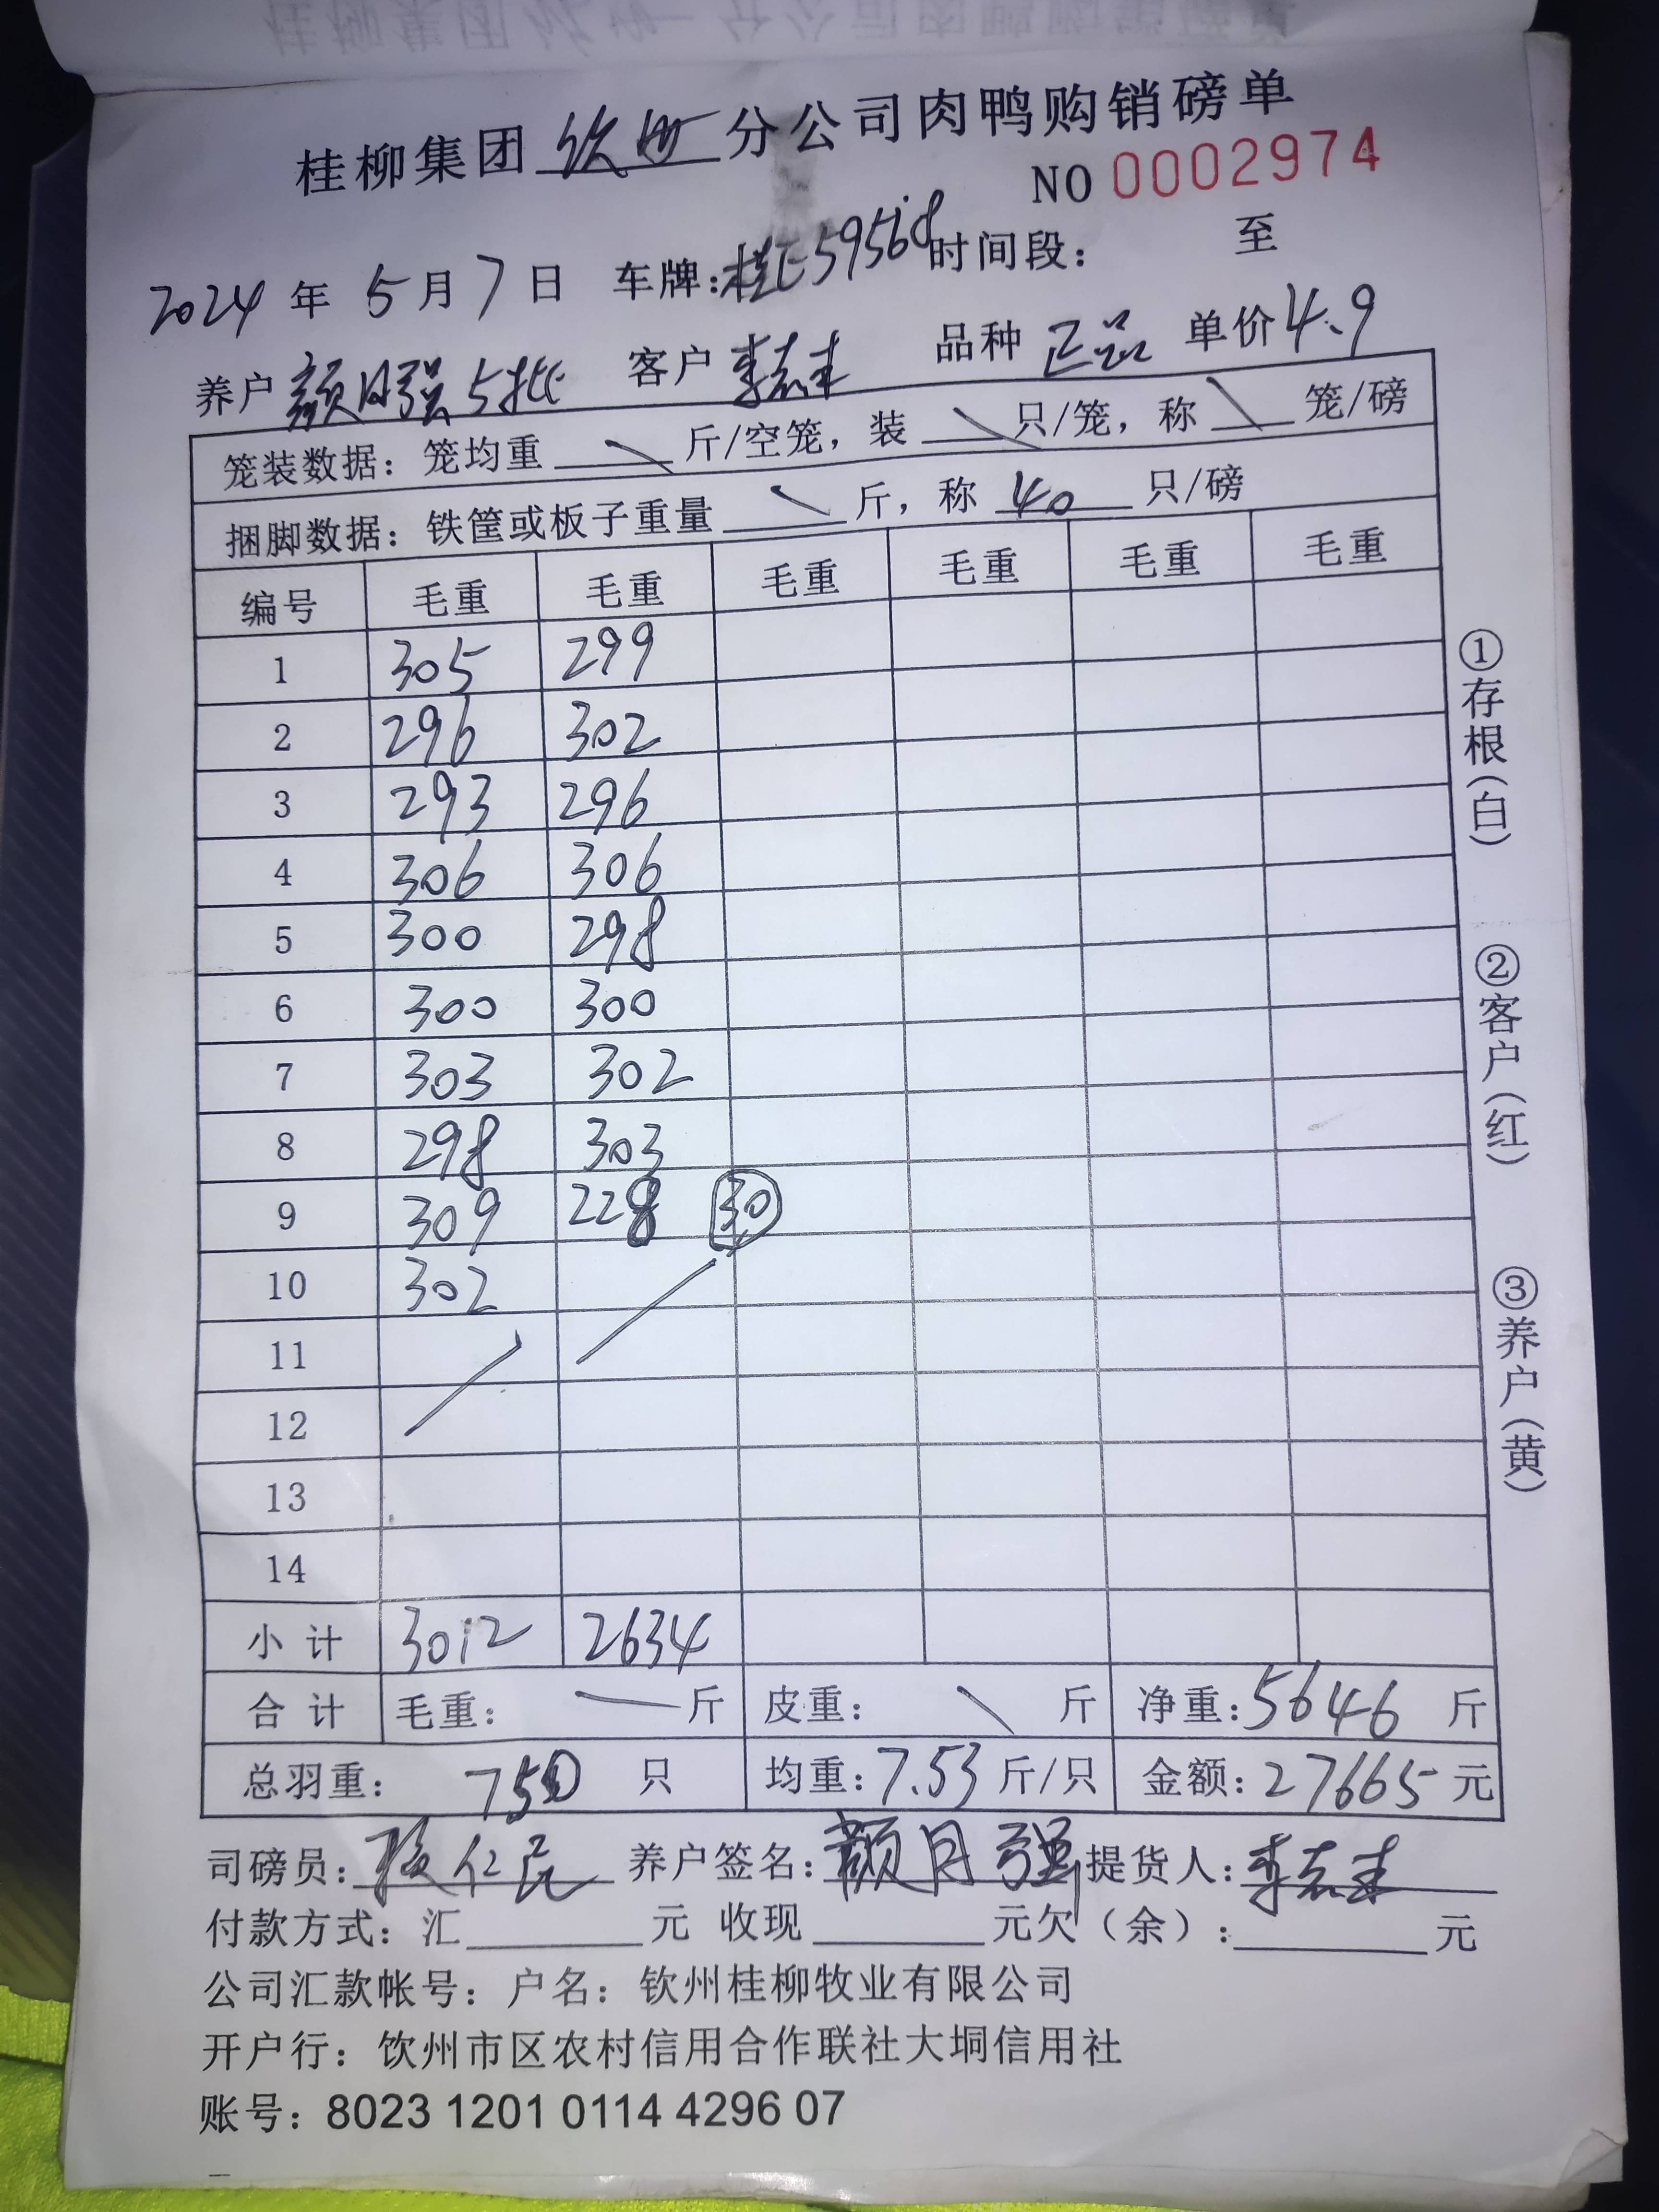 桂柳集团 钦州 分公司肉鸭购销磅单
NO 0002974
2024 年 5 月 7 日 车牌: 时间段: 至
养户 颜月强5批 客户 李志丰 品种 正品 单价 4.9
笼装数据: 笼均重 \ 斤/空笼, 装 \ 只/笼, 称 \ 笼/磅
捆脚数据: 铁筐或板子重量 \ 斤, 称 40 只/磅
编号 毛重 毛重 毛重 毛重 毛重 毛重
1 305 299
2 296 302
3 293 296
4 306 306
5 300 298
6 300 300
7 303 302
8 298 303
9 309 228 30
10 302
11
12
13
14
小计 3012 2634
合计 毛重: — 斤 皮重: \ 斤 净重: 5646 斤
总羽重: 750 只 均重: 7.53 斤/只 金额: 27665 元
司磅员: 仁民 养户签名: 颜月强 提货人: 李志丰
付款方式: 汇 元 收现 元欠(余): 元
公司汇款帐号: 户名: 钦州桂柳牧业有限公司
开户行: 钦州市区农村信用合作联社大垌信用社
账号: 8023 1201 0114 4296 07
①存根(白) ②客户(红) ③养户(黄)